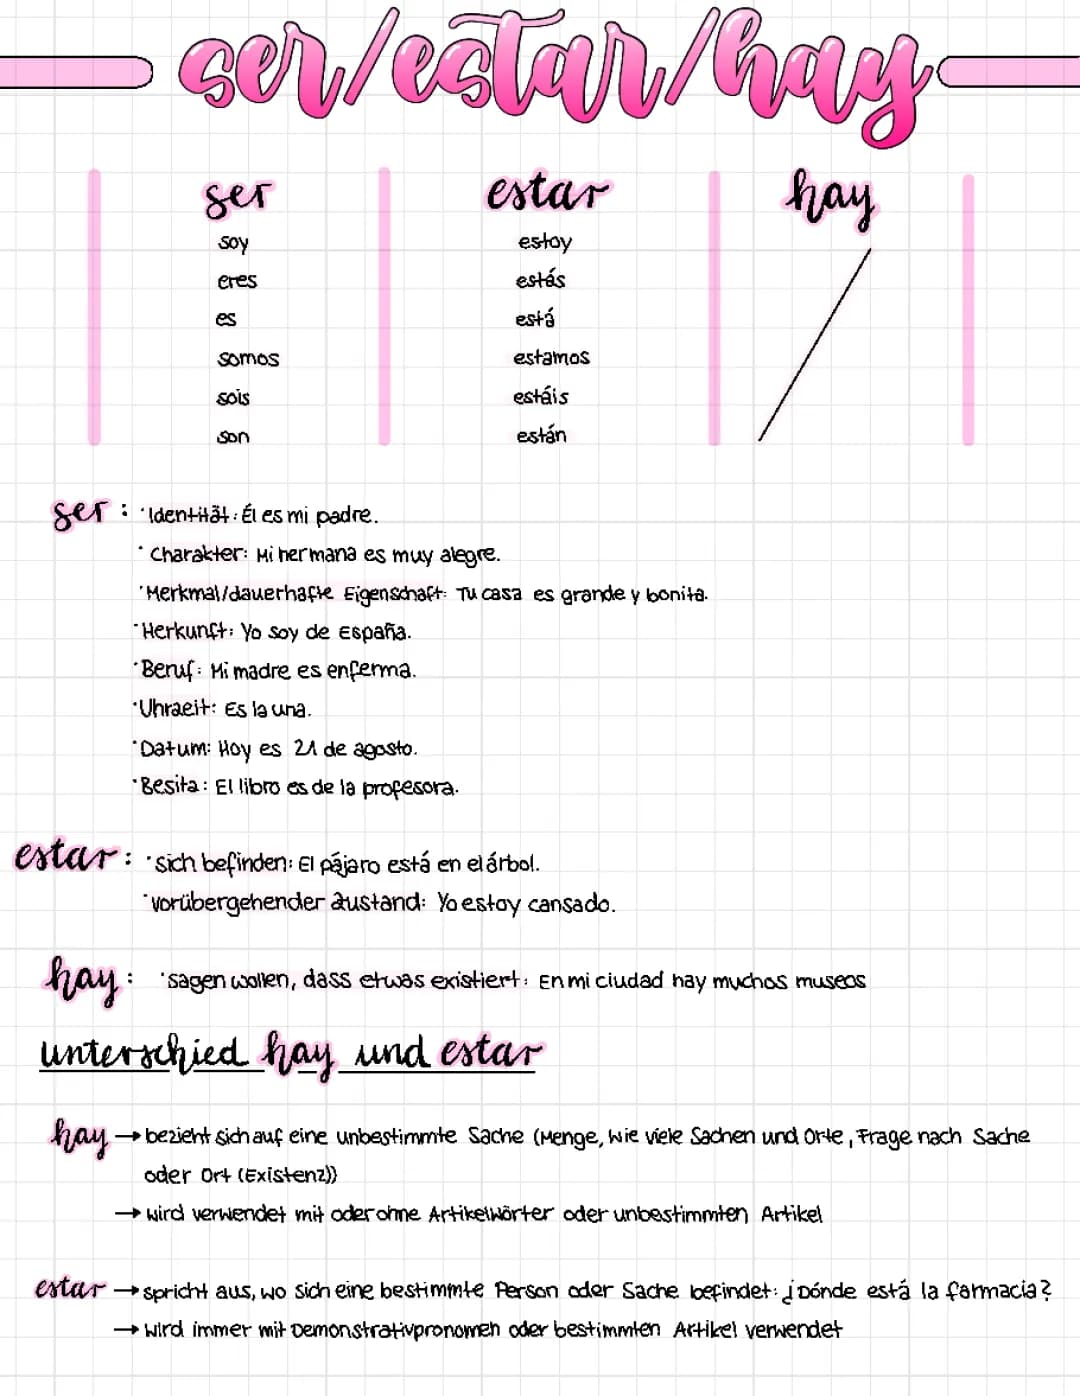 ser/estar/hay
ser estar hay
soy estoy
eres estás
es está
somos estamos
sois estáis
son están
ser: ·Identität: Él es mi padre.
·Charakter: Mi hermana es muy alegre.
·Merkmal/dauerhafte Eigenschaft: Tu casa es grande y bonita.
·Herkunft: Yo soy de España.
·Beruf: Mi madre es enferma.
·Uhrzeit: Es la una.
·Datum: Hoy es 21 de agosto.
·Besitz: El libro es de la profesora.
estar: ·sich befinden: El pájaro está en el árbol.
·vorübergehender Zustand: Yo estoy cansado.
hay: ·sagen wollen, dass etwas existiert: En mi ciudad hay muchos museos
unterschied hay und estar
hay → bezieht sich auf eine unbestimmte Sache (Menge, wie viele Sachen und Orte, Frage nach Sache
oder Ort (Existenz))
→ wird verwendet mit oder ohne Artikelwörter oder unbestimmten Artikel
estar → spricht aus, wo sich eine bestimmte Person oder Sache befindet: ¿Dónde está la farmacia?
→ wird immer mit Demonstrativpronomen oder bestimmten Artikel verwendet